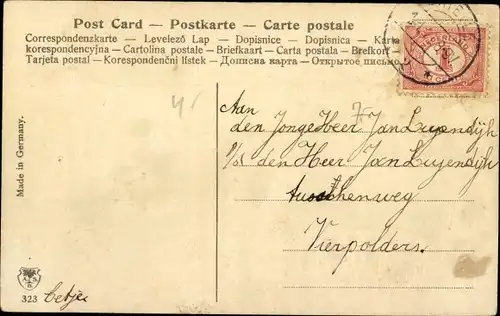 Post Card – Postkarte – Carte postale
Correspondenzkarte – Levelező Lap – Dopisnice – Dopisnica – Karta
korespondencyjna – Cartolina postale – Briefkaart – Carta postala – Brefkort
Tarjeta postal – Korespondenční lístek – Дописна карта – Открытое письмо
NEDERLAND
Aan
den Jonge Heer Jan Luyendijk
p/a den Heer Jan Luyendijk
Tusschenweg
Vierpolders.
Made in Germany.
323
Betje